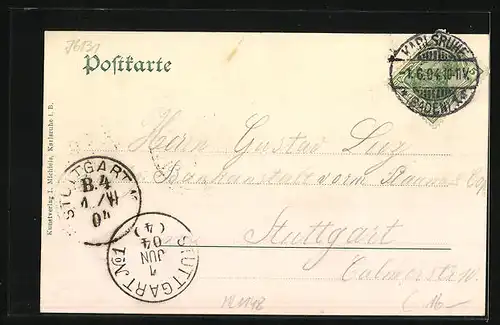 76131
Postkarte
KARLSRUHE
1.6.04.10-11V.
(BADEN)
Herrn Gustav Luz
Bankanstalt vorm
Stuttgart
Calwerstr.
STUTTGART
B.4
04
STUTTGART No1
1
JUN
04
(4)
Kunstverlag J. Michlela, Karlsruhe i. B.